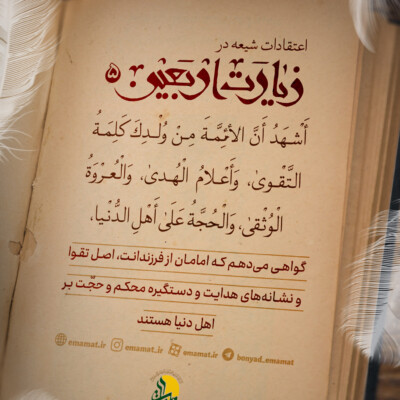 اعتقادات شیعه در
زیارت اربعین ۵
أَشْهَدُ أَنَّ الأَئِمَّةَ مِنْ وُلْدِكَ كَلِمَةُ
التَّقْوىٰ، وَأَعْلامُ الْهُدىٰ، وَالْعُرْوَةُ
الْوُثْقىٰ، وَالْحُجَّةُ عَلىٰ أَهْلِ الدُّنْیا،
گواهی می‌دهم که امامان از فرزندانت، اصل تقوا
و نشانه‌های هدایت و دستگیره محکم و حجّت بر
اهل دنیا هستند
emamat.ir emamat_ir emamat_ir bonyad_emamat